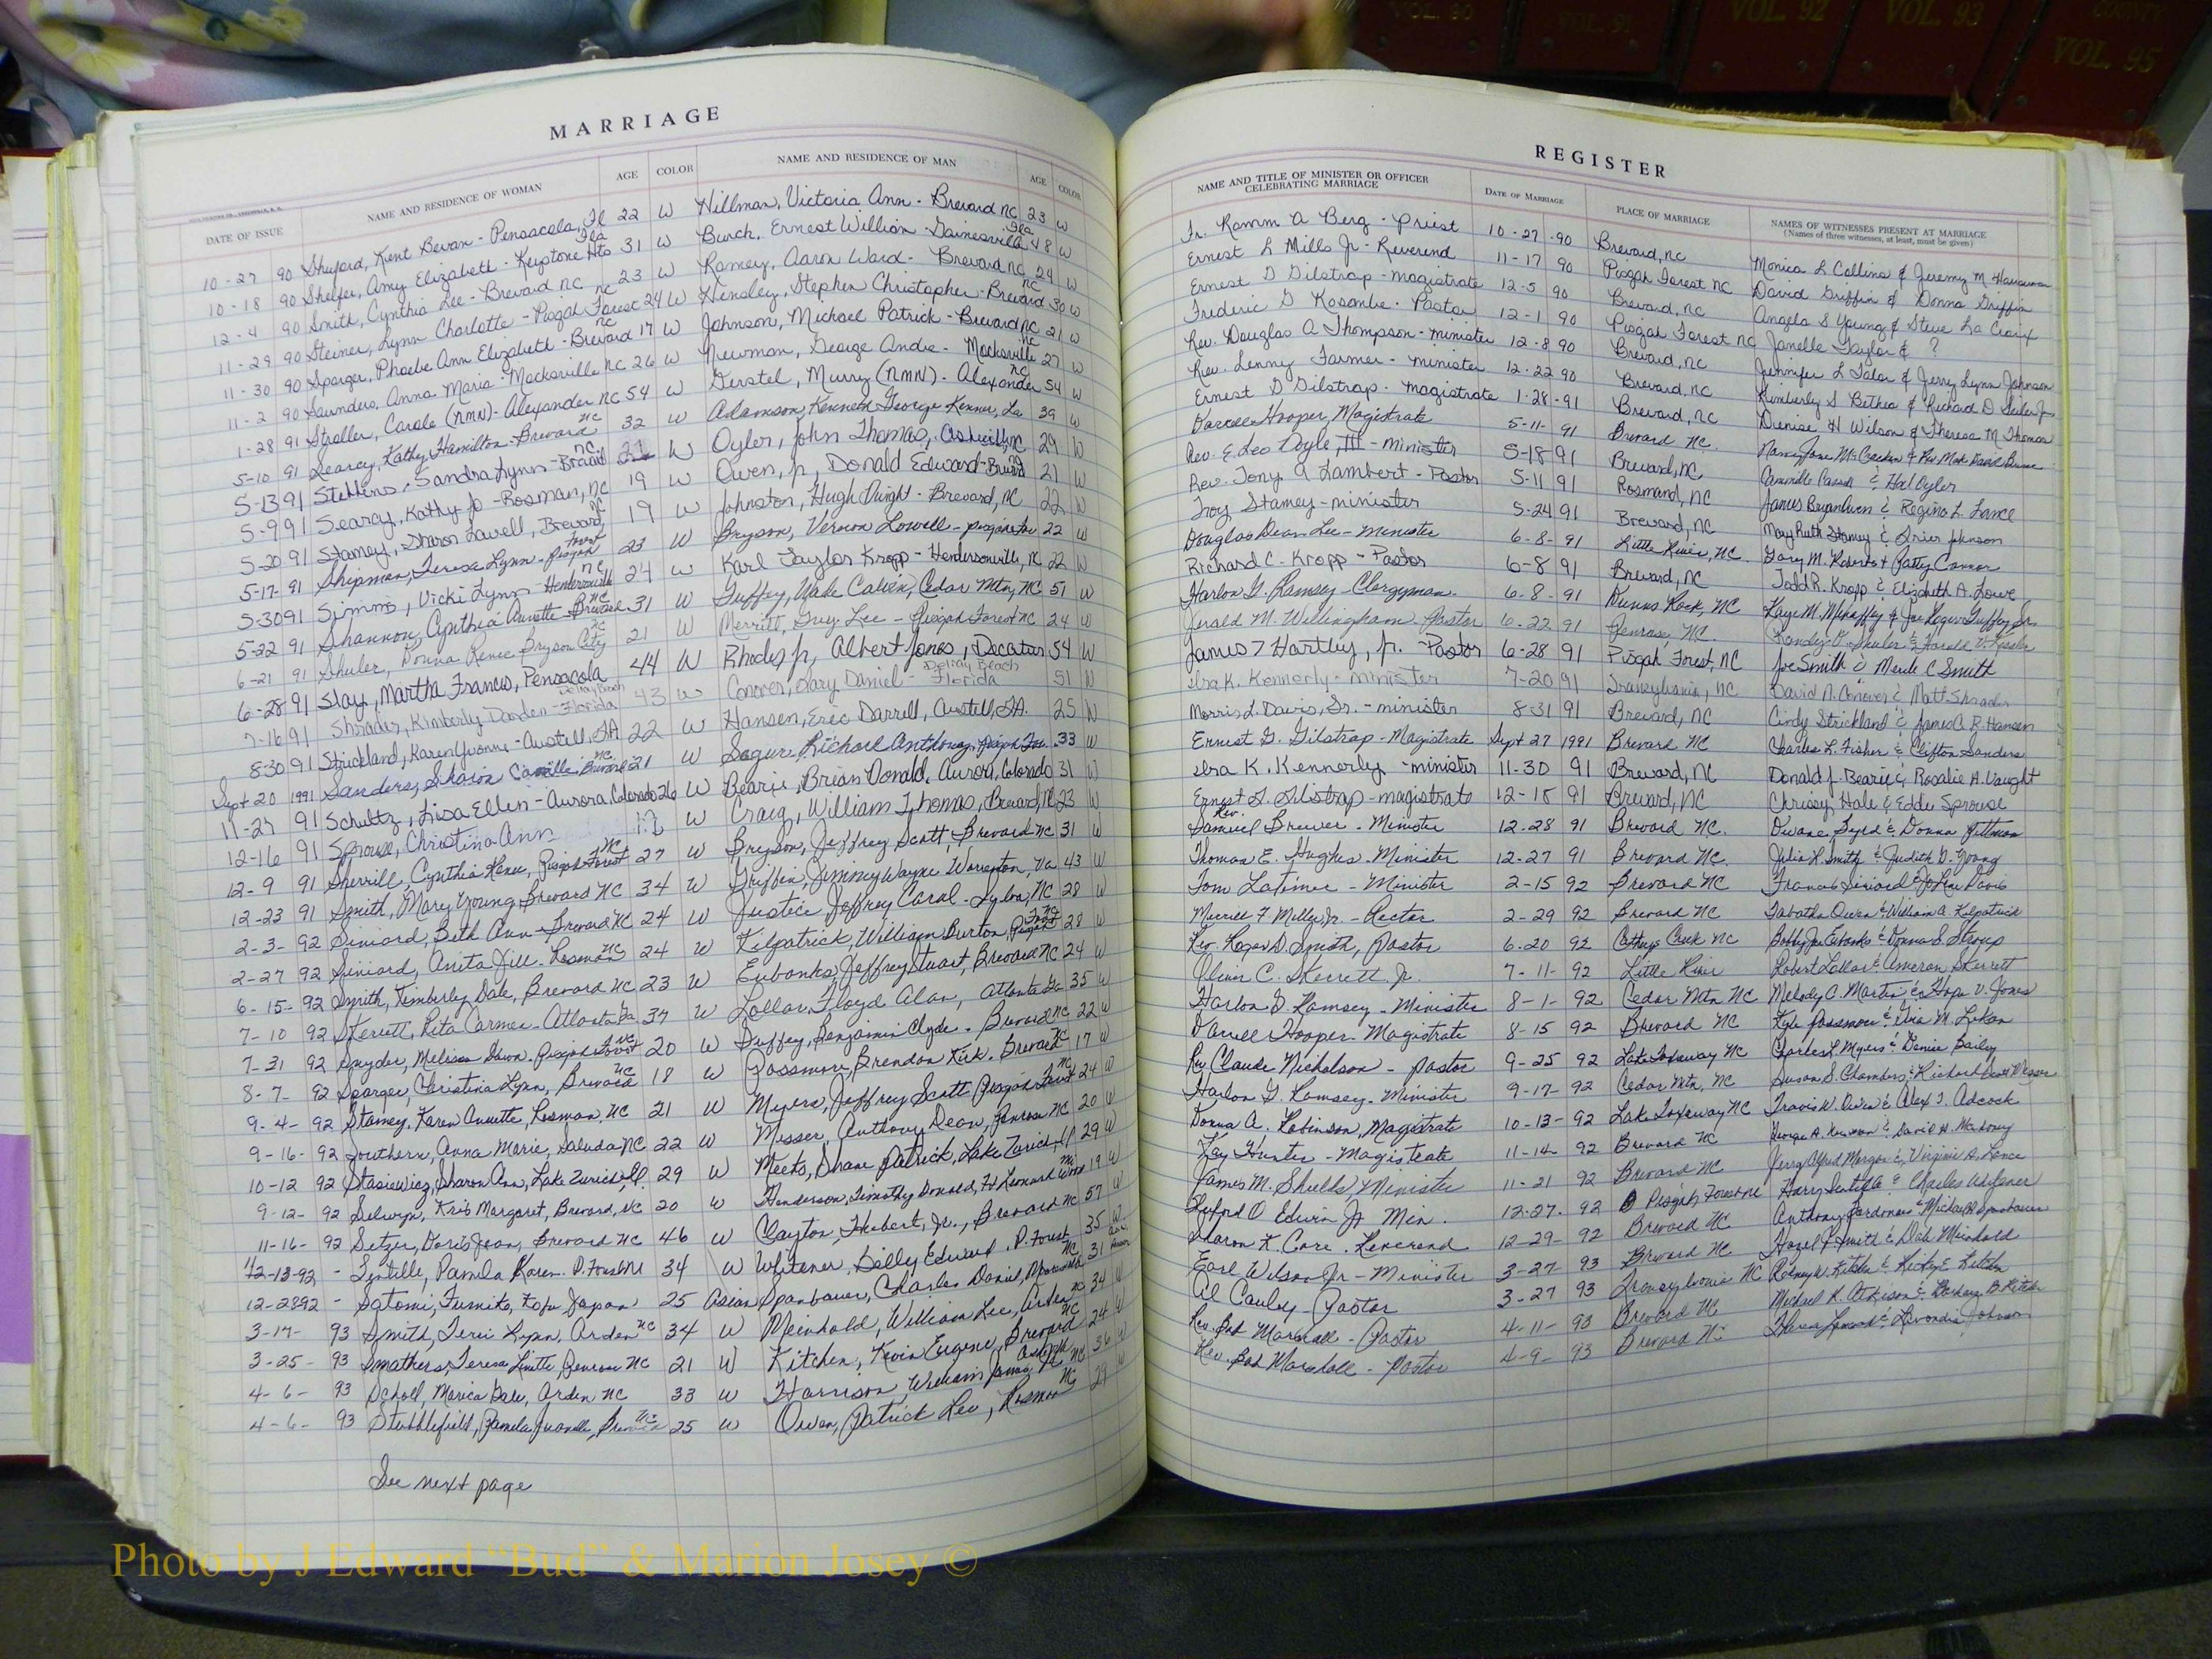 VOL. 90 VOL. 91 VOL. 92 VOL. 93 COUNTY VOL. 95
MARRIAGE
DATE OF ISSUE NAME AND RESIDENCE OF WOMAN AGE COLOR NAME AND RESIDENCE OF MAN AGE COLOR
10-27 90 Shuford, Kent Bevan - Pensacola, Fl 22 W Hillman, Victoria Ann - Brevard NC 23 W
10-18 90 Shelfer, Amy Elizabeth - Keystone Hts Fla 31 W Burch, Ernest William - Gainesville Fla 48 W
12-4 90 Smith, Cynthia Lee - Brevard NC 23 W Ramey, Aaron Ward - Brevard NC 24 W
11-29 90 Steiner, Lynn Charlotte - Pisgah Forest NC 24 W Hensley, Stephen Christopher - Brevard NC 30 W
11-30 90 Sparger, Phoebe Ann Elizabeth - Brevard NC 17 W Johnson, Michael Patrick - Brevard NC 21 W
11-2 90 Saunders, Anna Maria - Mocksville NC 26 W Newman, George Andre - Mocksville NC 27 W
1-28 91 Straller, Carole (NMN) - Alexander NC 54 W Gerstel, Murry (NMN) - Alexander NC 54 W
5-10 91 Searcy, Kathy Hamilton - Brevard NC 32 W Adamson, Kenneth George Kenner, La 39 W
5-13 91 Stebbins, Sandra Lynn - Brevard NC 21 W Oyler, John Thomas, Asheville, NC 29 W
5-9 91 Searcy, Kathy Jo - Rosman, NC 19 W Owen, Jr, Donald Edward - Brevard NC 21 W
5-20 91 Stamey, Sharon Lavell, Brevard, NC 19 W Johnston, Hugh Dwight - Brevard, NC 22 W
5-17 91 Shipman, Teresa Lynn - Pisgah Forest 23 W Bryson, Vernon Lowell - Pisgah For 22 W
5-30 91 Simms, Vicki Lynn - Hendersonville NC 24 W Karl Taylor Kropp - Hendersonville, NC 22 W
5-22 91 Shannon, Cynthia Annette - Brevard NC 31 W Guffey, Wade Calvin, Cedar Mtn, NC 51 W
6-21 91 Shuler, Donna Renee Bryson City NC 21 W Merritt, Guy Lee - Pisgah Forest NC 24 W
6-28 91 Slay, Martha Francis, Pensacola 44 W Rhodes Jr, Albert Jones, Decatur 54 W
7-16 91 Shrader, Kimberly Darden - Delray Beach Florida 43 W Conover, Gary Daniel - Delray Beach Florida 51 W
8-30 91 Strickland, Karen Yvonne - Austell, GA 22 W Hansen, Eric Darrell, Austell, GA. 25 W
Sept 20 1991 Sanders, Sharon Camille Brevard NC 21 W Richard Anthony, Pisgah For. 33 W
11-27 91 Schultz, Lisa Ellen - Aurora, Colorado 26 W Bearie, Brian Donald, Aurora, Colorado 31 W
12-16 91 Sprouse, Christina Ann W Craig, William Thomas, Brevard, NC 23 W
12-9 91 Sherrill, Cynthia Renee, Pisgah Forest NC 27 W Bryson, Jeffrey Scott, Brevard NC 31 W
12-23 91 Smith, Mary Young, Brevard NC 34 W Griffin, Jimmey Wayne Va 43 W
2-3- 92 Siniard, Beth Ann - Brevard NC 24 W Justice Jeffrey Carol - Sylva, NC 28 W
2-27 92 Siniard, Anita Jill - Rosman NC 24 W Kilpatrick, William Burton, Pisgah Forest NC 28 W
6-15- 92 Smith, Kimberly Dale, Brevard NC 23 W Eubanks, Jeffrey Stuart, Brevard NC 24 W
7-10 92 Skerrett, Rita Carmen - Atlanta Ga 37 W Lollar, Floyd Alan, Atlanta Ga 35 W
7-31 92 Snyder, Melissa Dawn - Pisgah Forest NC 20 W Guffey, Benjamin Clyde - Brevard NC 22 W
8-7- 92 Sparger, Christina Lynn, Brevard NC 18 W Passmore, Brendon Kirk, Brevard NC 17 W
9-4- 92 Stamey, Karen Annette, Rosman, NC 21 W Myers, Jeffrey Scott Pisgah Forest NC 24 W
9-16- 92 Southern, Anna Marie, Saluda NC 22 W Messer, Anthony Dean, Penrose NC 20 W
10-12 92 Stasiewicz, Sharon Ann, Lake Zurich, Il 29 W Meets, Shane Patrick, Lake Zurich, Il 29 W
9-12- 92 Selwyn, Kris Margaret, Brevard, NC 20 W Henderson, Timothy Donald, Ft Leonard Wood Mo 19 W
11-16- 92 Setzer, Doris Jean, Brevard NC 46 W Clayton, Hubert, Jr., Brevard NC 57 W
12-13-92 - Pamela Karen P. Forest NC 34 W Whitener, Billy Edward P. Forest NC 35 W
12-28 92 - Satomi, Fumiko, Japan 25 Asian Spanbauer, Charles Daniel 31
3-17- 93 Smith, Terri Lynn, Arden NC 34 W Meinhold, William Lee, Arden NC 34 W
3-25- 93 Smathers, Teresa Linette, Penrose NC 21 W Kitchen, Kevin Eugene, Brevard NC 24 W
4-6- 93 Scholl, Marica Arden NC 33 W Harrison, William James NC 36 W
4-6- 93 Stubblefield, Pamela Juanelle, Brevard NC 25 W Owen, Patrick Leo, Rosman NC 29
See next page
REGISTER
NAME AND TITLE OF MINISTER OR OFFICER CELEBRATING MARRIAGE DATE OF MARRIAGE PLACE OF MARRIAGE NAMES OF WITNESSES PRESENT AT MARRIAGE
(Names of three witnesses, at least, must be given)
Fr. A Berg - Priest 10-27-90 Brevard, NC Monica L Collins & Jeremy M
Ernest L Mills Jr - Reverend 11-17 90 Pisgah Forest NC David Griffin & Donna Griffin
Ernest G Gilstrap - magistrate 12-5 90 Brevard, NC Angela S Young & Steve La Croix
Frederic G Kosanke - Pastor 12-1 90 Pisgah Forest NC Janelle Taylor & ?
Rev. Douglas A Thompson - minister 12-8 90 Brevard, NC Jennifer L & Jerry Lynn Johnson
Rev. Lenny Farmer - minister 12-22 90 Brevard, NC Kimberly S Bethea & Richard D
Ernest G Gilstrap - magistrate 1-28-91 Brevard, NC Denise H Wilson & Theresa M Thomas
Darrell Hooper, Magistrate 5-11-91 Brevard NC Nancy Jane McCracken & Rev. Mark David
Rev. E. Leo Doyle, III - minister 5-18 91 Brevard, NC & Hal Oyler
Rev. Tony A Lambert - Pastor 5-11 91 Rosmand, NC James Bryan Owen & Regina L. Lance
Troy Stamey - minister 5-24 91 Brevard, NC Mary Ruth Stamey & Johnson
Douglas Dean Lee - Minister 6-8-91 Little River, NC Gary M. Roberts & Patty Connor
Richard C. Kropp - Pastor 6-8 91 Brevard, NC Todd R. Kropp & Elizabeth A. Lowe
Harlon G. Ramsey - Clergyman 6-8-91 Dunns Rock, NC Kaye M. Mehaffey & Joe Roger Guffey Sr.
Gerald M. Willingham Pastor 6-22 91 Penrose, NC. Randy D. Shuler & Harold V.
James T Hartley, Jr. - Pastor 6-28 91 Pisgah Forest, NC Joe Smith & Merle C Smith
Ira K. Kennerly - minister 7-20 91 Transylvania, NC David N. Conover & Matt Shrader
Morris L. Davis, Sr. - minister 8-31 91 Brevard, NC Cindy Strickland & James A. R. Hansen
Ernest G. Gilstrap - Magistrate Sept 27 1991 Brevard NC Charles L. Fisher & Clifton Sanders
Ira K. Kennerly - minister 11-30 91 Brevard, NC Donald J. Bearie & Rosalie A. Vaught
Ernest G. Gilstrap - magistrate 12-18 91 Brevard, NC Chrissy Hale & Eddie Sprouse
Rev. Samuel Brewer - Minister 12-28 91 Brevard NC. Dwane Byrd & Donna Pittman
Thomas E. Hughes - Minister 12-27 91 Brevard NC. Julia H. Smith & Judith G. Young
Tom Latimer - Minister 2-15 92 Brevard NC Frances Siniard & Davis
Merrill F Miller Jr. - Rector 2-29 92 Brevard NC Tabatha Owen & William A Kilpatrick
Rev. Logan D. Smith, Pastor 6-20 92 Cathys Creek NC Bobby Joe Eubanks & Donna S. Stroup
Oliver C. Skerrett Jr. 7-11-92 Little River Robert Lollar & Cameron Skerrett
Harlon G. Ramsey - Minister 8-1-92 Cedar Mtn NC Melody C. Martin & Hope V. Jones
Darrell Hooper - Magistrate 8-15 92 Brevard NC Kyle Passmore & Tina M. Lukan
Rev Claude Nicholson - Pastor 9-25 92 Lake Toxaway NC Charles L. Myers & Denise Bailey
Harlon G. Ramsey - Minister 9-17-92 Cedar Mtn, NC Susan S. Chambers & Richard Messer
Donna A. Robinson, Magistrate 10-13-92 Lake Toxaway NC Travis W. Owen & Alex T. Adcock
Kay Hunter - Magistrate 11-14 92 Brevard NC George A. & David H. Mahoney
James M. Shields, Minister 11-21 92 Brevard NC Jerry Alfred Morgan & Virginia A. Lance
Buford O Edwin Jr Min. 12-27-92 Pisgah Forest NC Harry & Charles Whitener
Aaron K. Core - Reverend 12-29-92 Brevard NC Anthony & Michael Spanbauer
Earl Wilson Jr - Minister 3-27 93 Brevard NC Hazel P. Smith & Dale Meinhold
Al Cauley - Pastor 3-27 93 Transylvania NC Rodney W. Kitchen & Kitchen
Rev. Bob Marshall - Pastor 4-11-93 Brevard NC Michael R. Atkison &
Rev. Bob Marshall - Pastor 4-9-93 Brevard NC & Johnson
Photo by J Edward "Bud" & Marion Josey ©